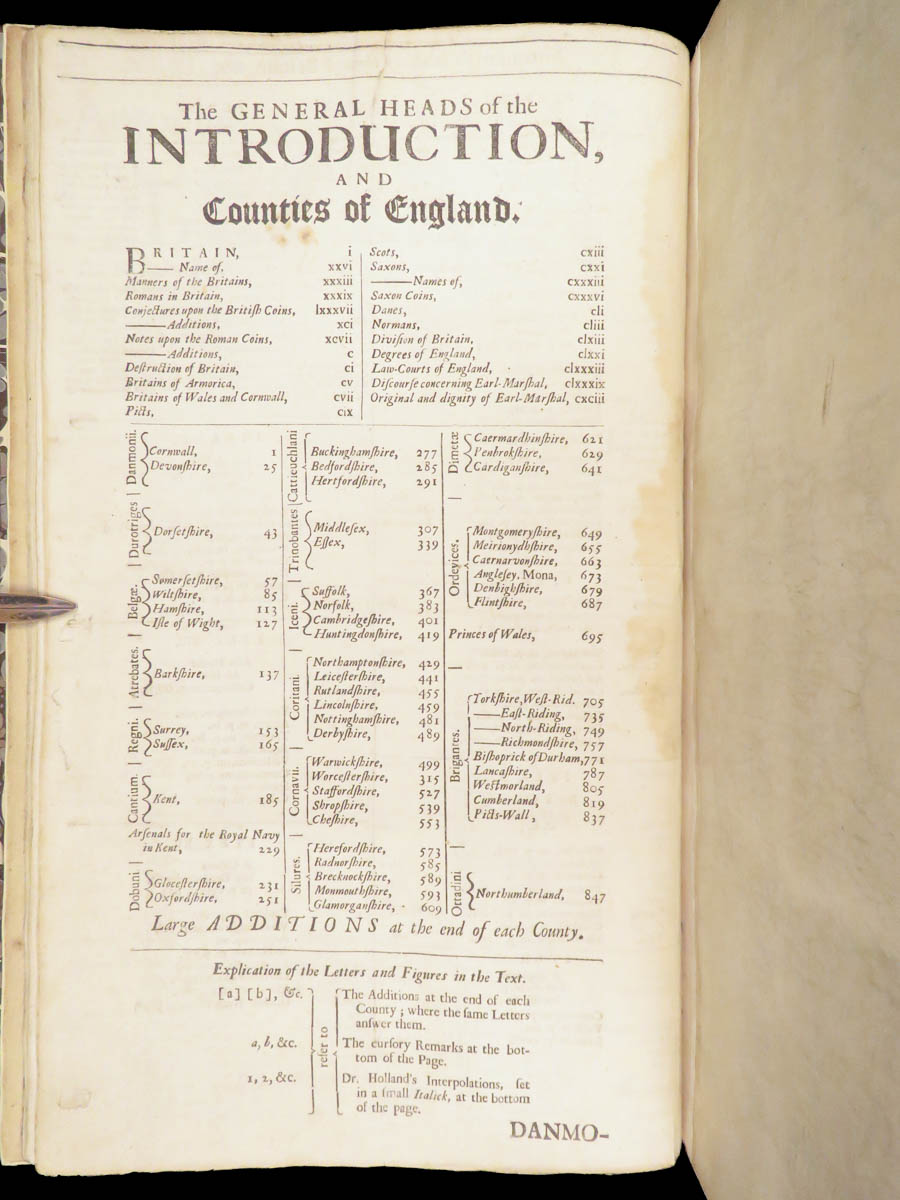 The GENERAL HEADS of the
INTRODUCTION,
AND
Counties of England.
BRITAIN, i
—— Name of. xxvi
Manners of the Britains, xxxiii
Romans in Britain, xxxix
Conjectures upon the Britiſh Coins, lxxxvii
——Additions, xci
Notes upon the Roman Coins, xcvii
——Additions, c
Deſtruction of Britain, ci
Britains of Armorica, cv
Britains of Wales and Cornwall, cvii
Picts, cix
Scots, cxiii
Saxons, cxxi
——Names of, cxxxiii
Saxon Coins, cxxxvi
Danes, cli
Normans, cliii
Diviſion of Britain, clxiii
Degrees of England, clxxi
Law-Courts of England, clxxxiii
Diſcourſe concerning Earl-Marſhal, clxxxix
Original and dignity of Earl-Marſhal, cxciii
Danmonii.
Cornwall, 1
Devonſhire, 25
Durotriges
Dorſetſhire, 43
Belgæ.
Somerſetſhire, 57
Wiltſhire, 85
Hamſhire, 113
Iſle of Wight, 127
Atrebates.
Barkſhire, 137
Regni.
Surrey, 153
Suſſex, 165
Cantium.
Kent, 185
Arſenals for the Royal Navy
in Kent, 229
Dobuni
Gloceſterſhire, 231
Oxfordſhire, 251
Cattieuchlani
Buckinghamſhire, 277
Bedfordſhire, 285
Hertfordſhire, 291
Trinobantes
Middleſex, 307
Eſſex, 339
Iceni.
Suffolk, 367
Norfolk, 383
Cambridgeſhire, 401
Huntingdonſhire, 419
Coritani.
Northamptonſhire, 429
Leiceſterſhire, 441
Rutlandſhire, 455
Lincolnſhire, 459
Nottinghamſhire, 481
Derbyſhire, 489
Cornavii.
Warwickſhire, 499
Worceſterſhire, 315
Staffordſhire, 527
Shropſhire, 539
Cheſhire, 553
Silures.
Herefordſhire, 573
Radnorſhire, 585
Brecknockſhire, 589
Monmouthſhire, 593
Glamorganſhire, 609
Dimetæ
Caermardhinſhire, 621
Penbrokſhire, 629
Cardiganſhire, 641
Ordevices.
Montgomeryſhire, 649
Meirionydhſhire, 655
Caernarvonſhire, 663
Angleſey. Mona, 673
Denbighſhire, 679
Flintſhire, 687
Princes of Wales, 695
Brigantes.
Yorkſhire, Weſt-Rid. 705
——Eaſt-Riding, 735
——North-Riding, 749
——Richmondſhire, 757
Biſhoprick of Durham, 771
Lancaſhire, 787
Weſtmorland, 805
Cumberland, 819
Picts-Wall, 837
Ottadini
Northumberland, 847
Large ADDITIONS at the end of each County.
Explication of the Letters and Figures in the Text.
[a] [b], &c.
a, b, &c.
1, 2, &c.
refer to
The Additions at the end of each
County; where the ſame Letters
anſwer them.
The curſory Remarks at the bot-
tom of the Page.
Dr. Holland's Interpolations, ſet
in a ſmall Italick, at the bottom
of the page.
DANMO-